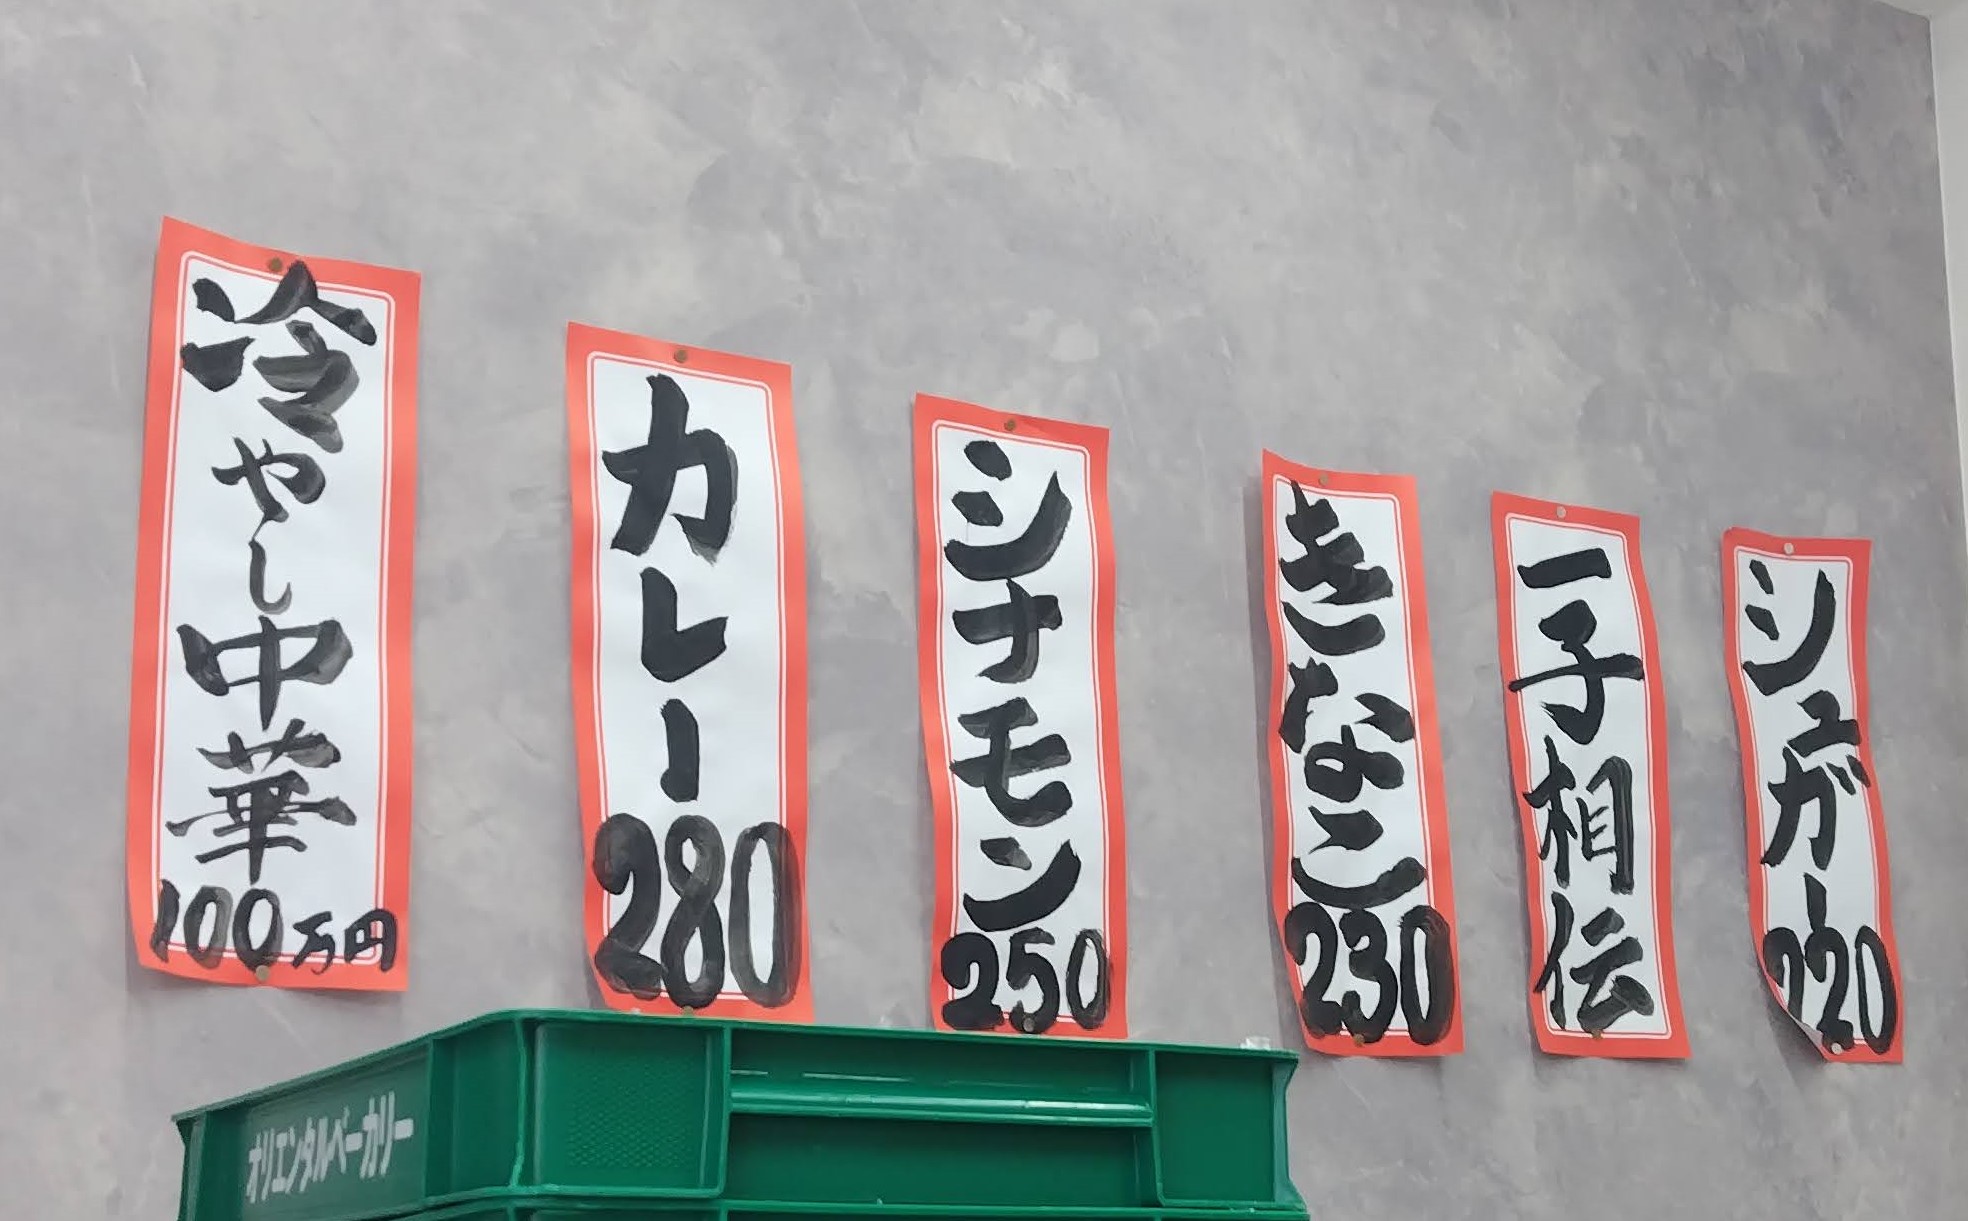 シュガー
220
一子相伝
きなこ
230
シナモン
250
カレー
280
冷やし中華
100万円
オリエンタルベーカリー